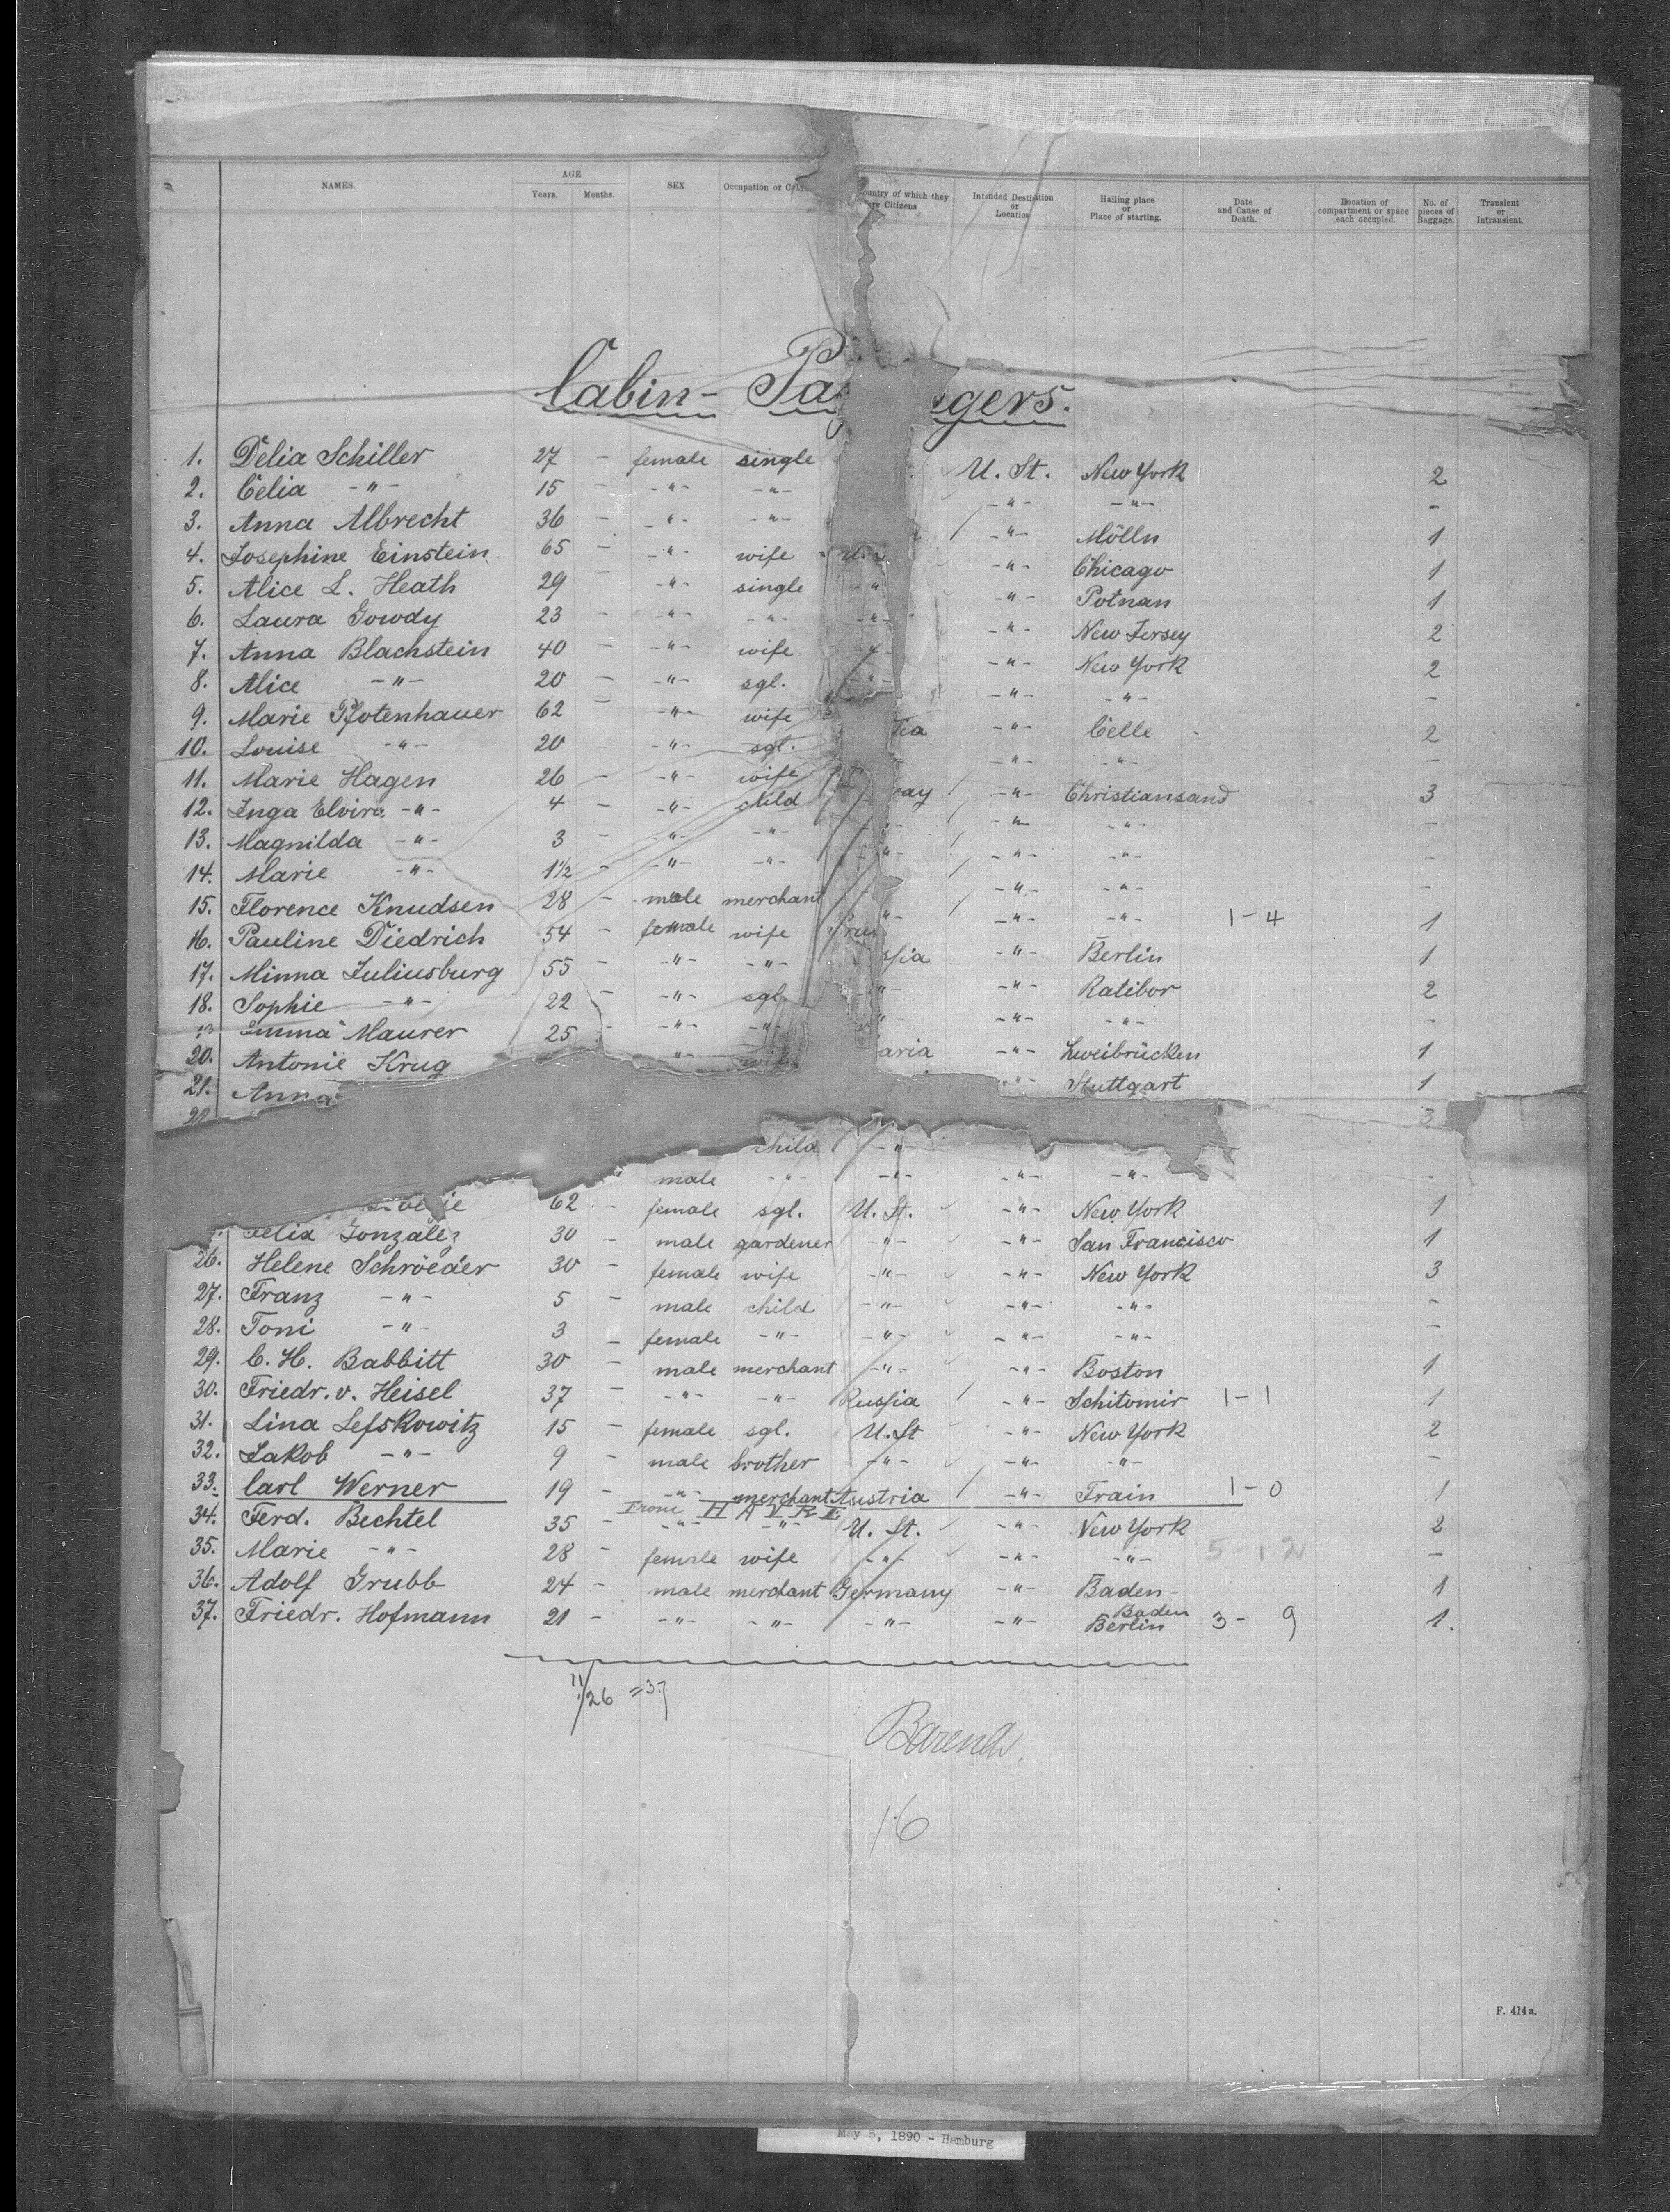 NAMES. AGE Years. Months. SEX Occupation or Country of which they are Citizens Intended Destination or Location Hailing place or Place of starting. Date and Cause of Death. Location of compartment or space each occupied. No. of pieces of Baggage. Transient or Intransient.
Cabin- Pas gers.
1. Delia Schiller 27 - female single U. St. New York 2
2. Celia -"- 15 - -"- -"- -"- -"- -
3. Anna Albrecht 36 - -"- -"- / -"- Mölln 1
4. Josephine Einstein 65 - -"- wife U. -"- Chicago 1
5. Alice L. Heath 29 - -"- single -"- -"- Potnan 1
6. Laura Gowdy 23 - -"- -"- -"- -"- New Jersey 2
7. Anna Blachstein 40 - -"- wife -"- -"- New York 2
8. Alice -"- 20 - -"- sgl. -"- -"- -"- -
9. Marie Pfotenhauer 62 - -"- wife -"- Celle 2
10. Louise -"- 20 -"- sgl. -"- -"- -
11. Marie Hagen 26 - -"- wife way / -"- Christiansand 3
12. Inga Elvira -"- 4 - -"- child -"- / -"- -"- -
13. Magnilda -"- 3 - -"- -"- -"- / -"- -"- -
14. Marie -"- 1 1/2 - -"- -"- / -"- -"- -
15. Florence Knudsen 28 - male merchant -"- / -"- -"- 1-4 1
16. Pauline Diedrich 54 - female wife Prussia -"- Berlin 1
17. Minna Juliusburg 55 - -"- -"- -"- -"- Ratibor 2
18. Sophie -"- 22 - -"- sgl. -"- -"- -"- -
Emma Maurer 25 - -"- -"- aria -"- Zweibrücken 1
20. Antonie Krug -"- wife -"- Stuttgart 1
21. Anna 3
child -"-
male -"- -"- -"- -"- -
62 - female sgl. U. St. -"- New York 1
Felix Gonzalez 30 - male gardener -"- -"- San Francisco 1
26. Helene Schröeder 30 - female wife -"- -"- New York 3
27. Franz -"- 5 - male child -"- -"- -"- -
28. Toni -"- 3 - female -"- -"- -"- -"- -
29. C. H. Babbitt 30 - male merchant -"- -"- Boston 1
30. Friedr. v. Heisel 37 - -"- -"- Russia / -"- Schitomir 1-1 1
31. Lina Lefskowitz 15 - female sgl. U. St -"- New York 2
32. Jakob -"- 9 - male brother -"- -"- -"- -
33. Carl Werner 19 - -"- merchant Austria / -"- Train 1-0 1
From HAVRE
34. Ferd. Bechtel 35 - -"- -"- U. St. -"- New York 2
35. Marie -"- 28 - female wife -"- -"- -"- 5-12 -
36. Adolf Grubb 24 - male merchant Germany -"- Baden- 1
Baden
37. Friedr. Hofmann 21 - -"- -"- -"- -"- Berlin 3-9 1.
11/26 = 37
Barends.
16
F. 414a.
May 5, 1890 - Hamburg